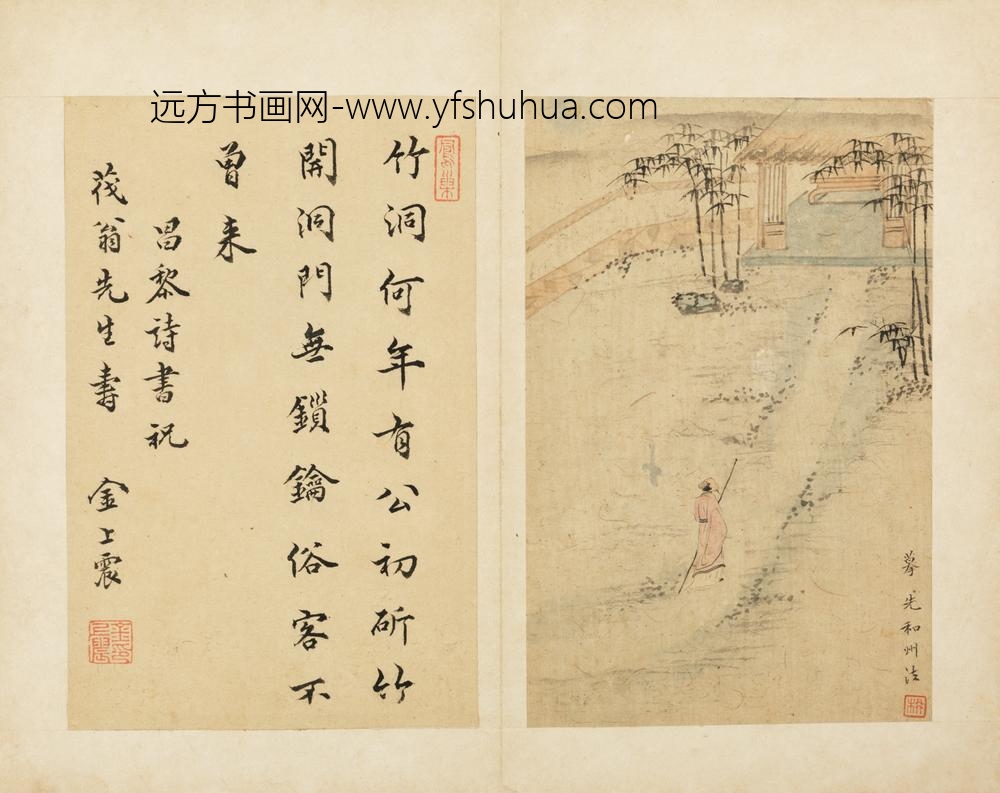 远方书画网-www.yfshuhua.com
竹洞何年有公初斫竹
開洞門無鎖鑰俗客不
曾来
昌黎詩書祝
茂翁先生壽
金上震
摹先和州法